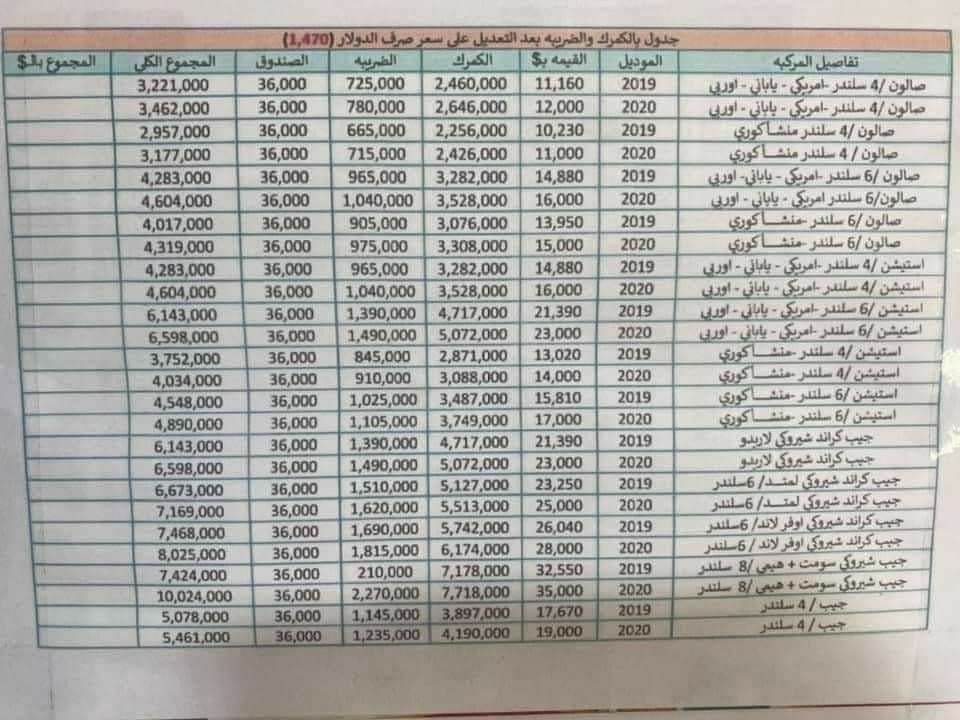 جدول بالكمرك والضريبه بعد التعديل على سعر صرف الدولار (1,470)
تفاصيل المركبه الموديل القيمه ب$ الكمرك الضريبه الصندوق المجموع الكلي المجموع بالـ$
صالون /4 سلندر -امريكي - ياباني - اوربي 2019 11,160 2,460,000 725,000 36,000 3,221,000
صالون /4 سلندر -امريكي - ياباني - اوربي 2020 12,000 2,646,000 780,000 36,000 3,462,000
صالون /4 سلندر منشأ كوري 2019 10,230 2,256,000 665,000 36,000 2,957,000
صالون / 4 سلندر منشأ كوري 2020 11,000 2,426,000 715,000 36,000 3,177,000
صالون /6 سلندر -امريكي - ياباني- اوربي 2019 14,880 3,282,000 965,000 36,000 4,283,000
صالون/6 سلندر امريكي - ياباني - اوربي 2020 16,000 3,528,000 1,040,000 36,000 4,604,000
صالون /6 سلندر -منشأ كوري 2019 13,950 3,076,000 905,000 36,000 4,017,000
صالون /6 سلندر -منشأ كوري 2020 15,000 3,308,000 975,000 36,000 4,319,000
استيشن /4 سلندر -امريكي - ياباني - اوربي 2019 14,880 3,282,000 965,000 36,000 4,283,000
استيشن /4 سلندر -امريكي - ياباني - اوربي 2020 16,000 3,528,000 1,040,000 36,000 4,604,000
استيشن /6 سلندر -امريكي - ياباني - اوربي 2019 21,390 4,717,000 1,390,000 36,000 6,143,000
استيشن /6 سلندر -امريكي - ياباني - اوربي 2020 23,000 5,072,000 1,490,000 36,000 6,598,000
استيشن /4 سلندر -منشأ كوري 2019 13,020 2,871,000 845,000 36,000 3,752,000
استيشن /4 سلندر -منشأ كوري 2020 14,000 3,088,000 910,000 36,000 4,034,000
استيشن /6 سلندر -منشأ كوري 2019 15,810 3,487,000 1,025,000 36,000 4,548,000
استيشن /6 سلندر -منشأ كوري 2020 17,000 3,749,000 1,105,000 36,000 4,890,000
جيب كراند شيروكي لاريدو 2019 21,390 4,717,000 1,390,000 36,000 6,143,000
جيب كراند شيروكي لاريدو 2020 23,000 5,072,000 1,490,000 36,000 6,598,000
جيب كراند شيروكي لمتد/ 6سلندر 2019 23,250 5,127,000 1,510,000 36,000 6,673,000
جيب كراند شيروكي لمتد/ 6سلندر 2020 25,000 5,513,000 1,620,000 36,000 7,169,000
جيب كراند شيروكي اوفر لاند/ 6سلندر 2019 26,040 5,742,000 1,690,000 36,000 7,468,000
جيب كراند شيروكي اوفر لاند / 6سلندر 2020 28,000 6,174,000 1,815,000 36,000 8,025,000
جيب شيروكي سومت + هيمي /8 سلندر 2019 32,550 7,178,000 210,000 36,000 7,424,000
جيب شيروكي سومت + هيمي /8 سلندر 2020 35,000 7,718,000 2,270,000 36,000 10,024,000
جيب / 4 سلندر 2019 17,670 3,897,000 1,145,000 36,000 5,078,000
جيب / 4 سلندر 2020 19,000 4,190,000 1,235,000 36,000 5,461,000